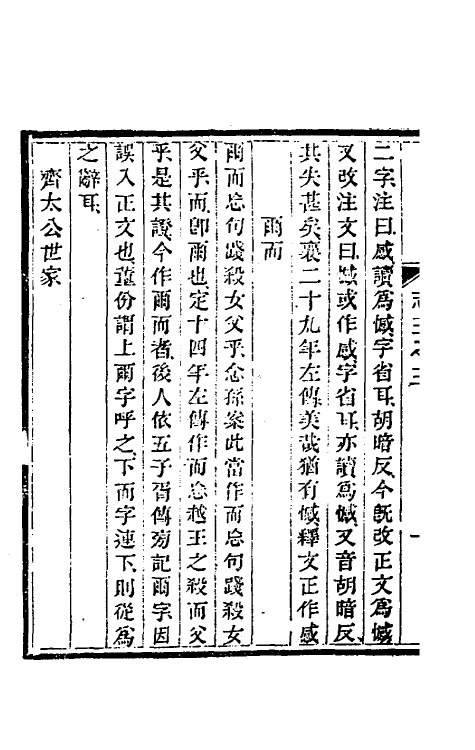 二字注曰感讀爲憾字省耳胡暗反今旣改正文爲憾
又改注文曰憾或作感字省耳亦讀爲憾又音胡暗反
其失甚矣襄二十九年左傳美哉猶有憾釋文正作感
爾而
爾而忘句踐殺女父乎念孫案此當作而忘句踐殺女
父乎而卽爾也定十四年左傳作而忘越王之殺而父
乎是其證今作爾而者後人依五子胥傳旁記爾字因
誤入正文也董份謂上爾字呼之下而字連下則從爲
之辭耳
齊太公世家